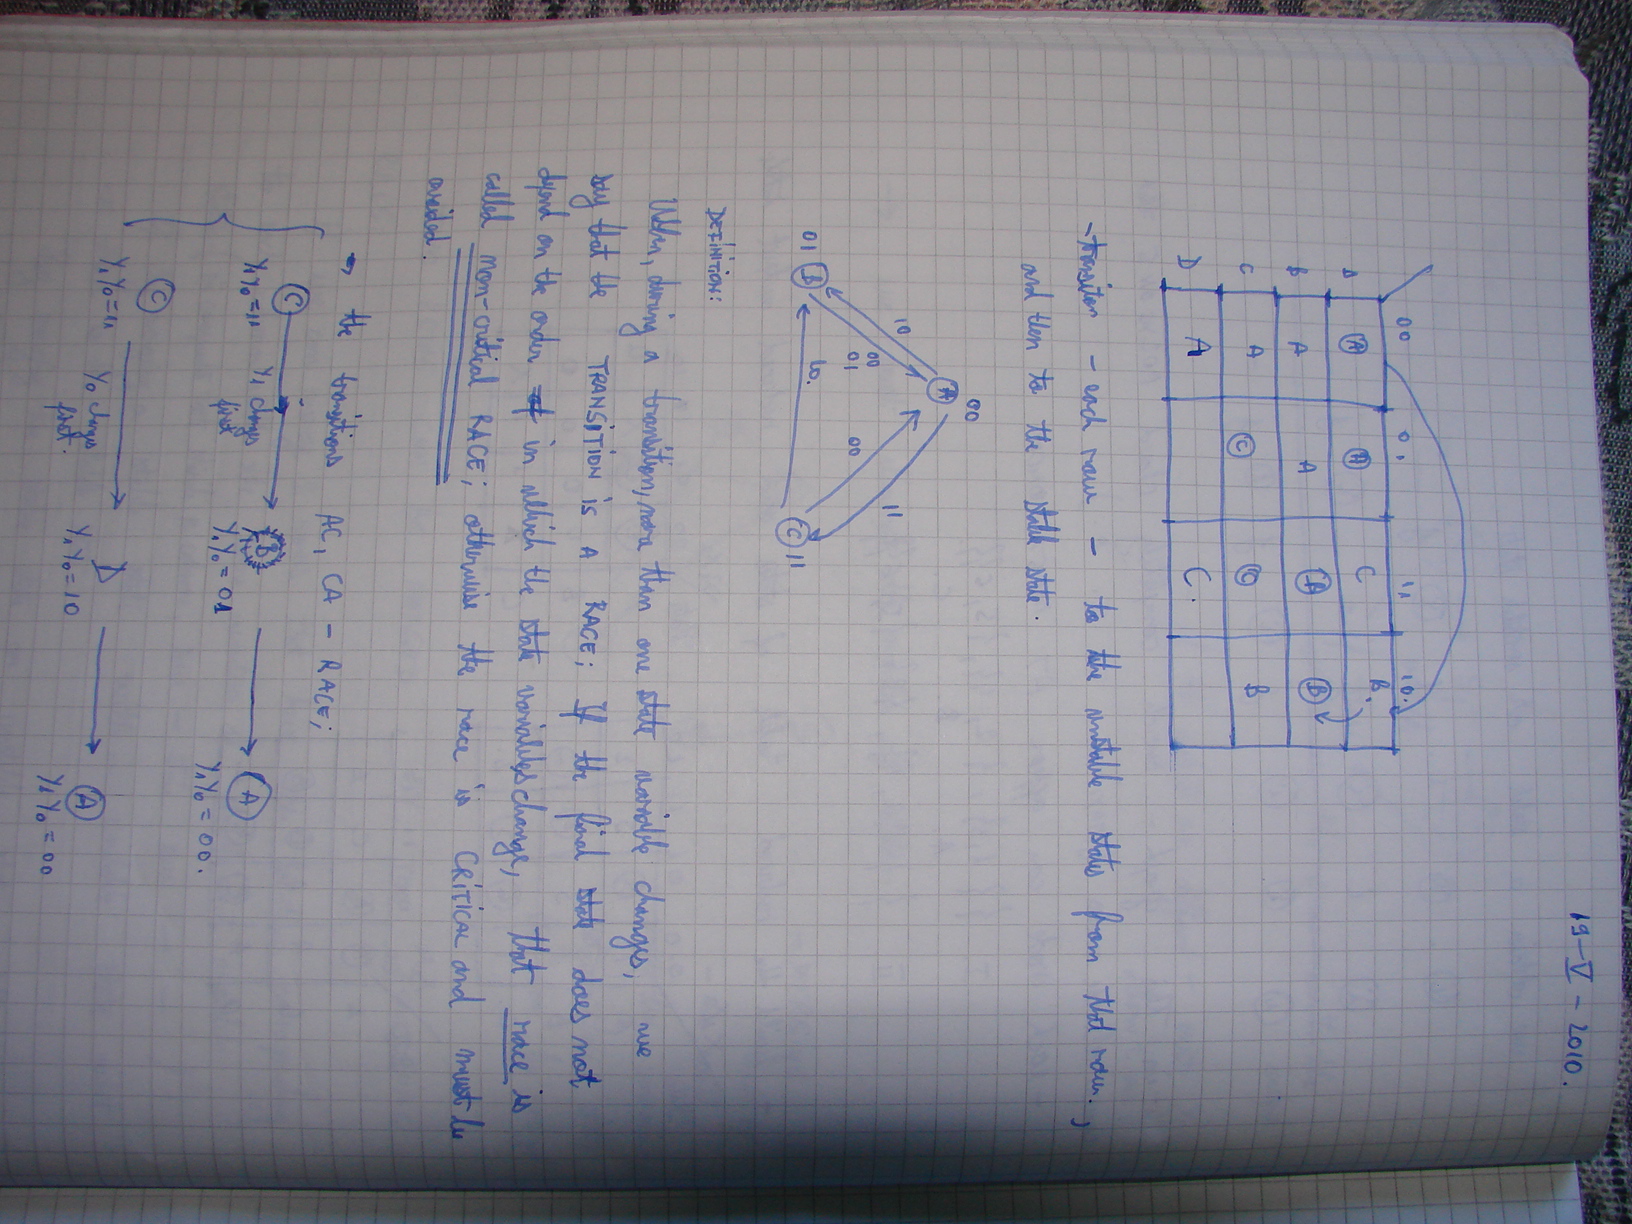 19-V-2010.
00 01 11 10.
A Ⓐ Ⓐ C B.
B A A Ⓑ Ⓑ
C A Ⓒ Ⓒ B
D A C.
- transition - each row - to the unstable states from that row,
and then to the stable state.
00
A
10
11
00
01
00
01
B
10.
C
11
DEFINITION:
When, during a transition, more than one state variable changes, we
say that the TRANSITION is A RACE; if the final state does not
depend on the order in which the state variables change, that race is
called non-critical RACE; otherwise the race is CRITICAL and must be
avoided.
→ the transitions AC, CA - RACE;
C B A
Y₁Y₀=11 Y₁ changes first Y₁Y₀=01 Y₁Y₀=00.
C D A
Y₁Y₀=11 Y₀ changes first. Y₁Y₀=10 Y₁Y₀=00